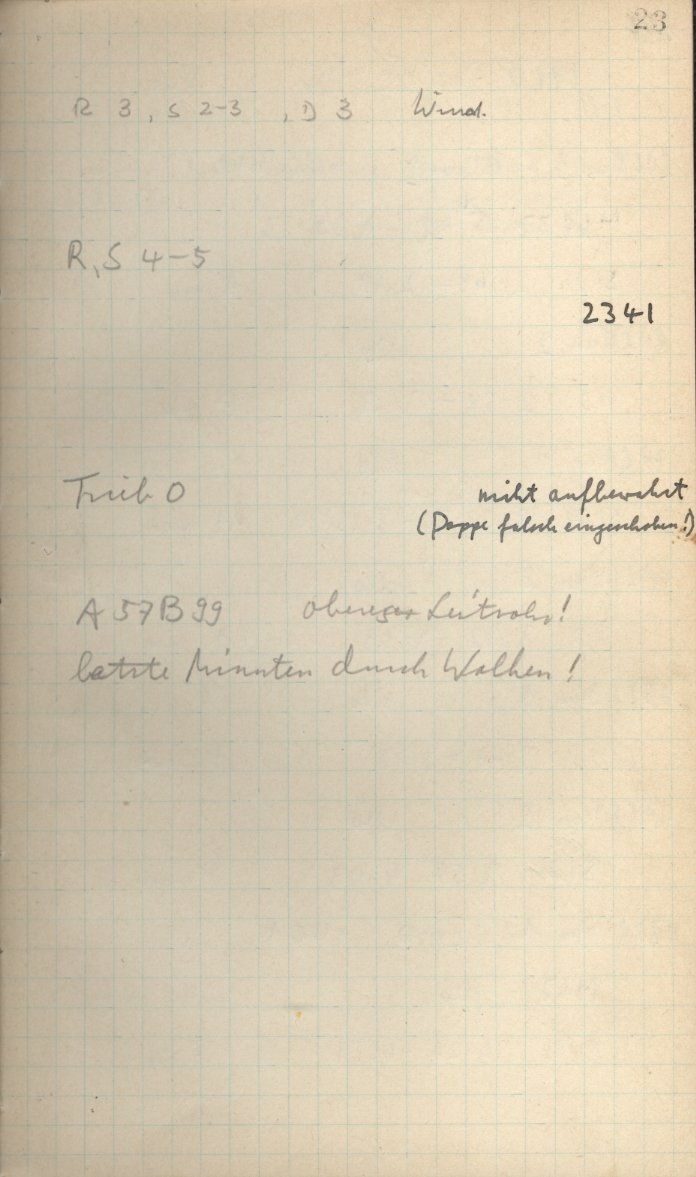 23
R 3, S 2-3, D 3 Wind.
R, S 4-5
2341
Trieb 0 nicht aufbewahrt
(Pappe falsch eingeschoben!)
A 57 B 99 oberes Leitrohr!
letzte Minuten durch Wolken!